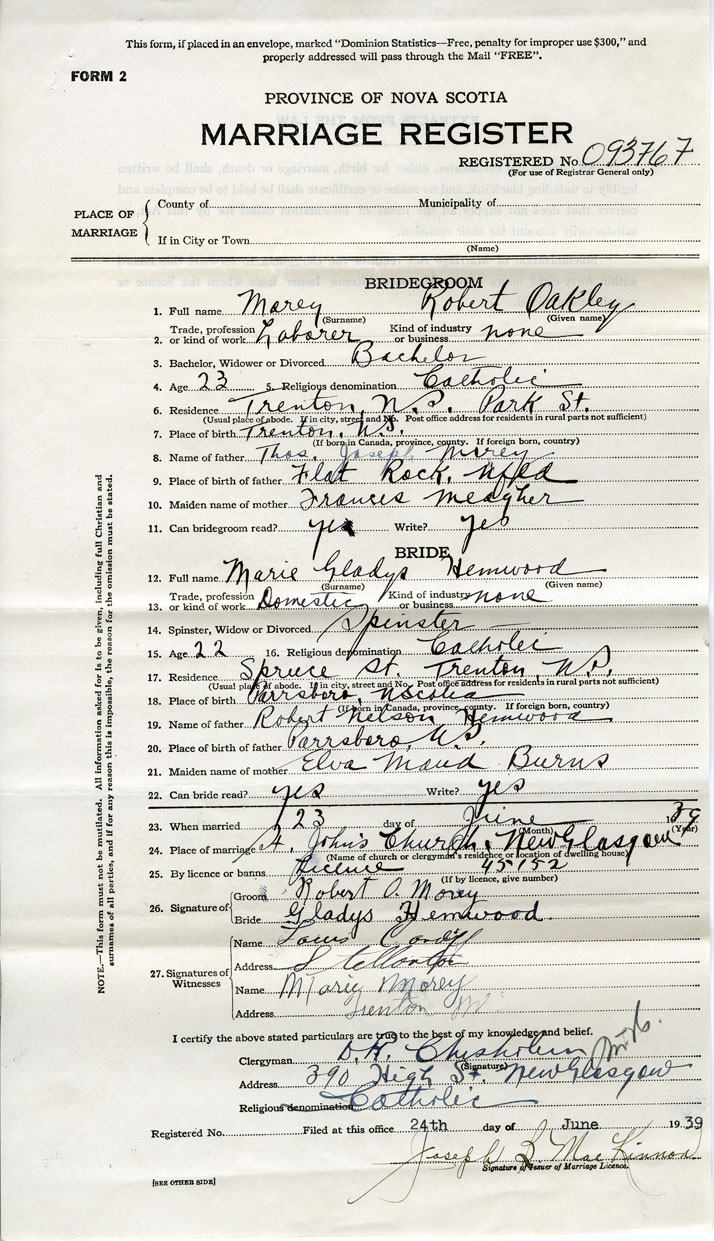 This form, if placed in an envelope, marked "Dominion Statistics—Free, penalty for improper use $300," and
properly addressed will pass through the Mail "FREE".
FORM 2
PROVINCE OF NOVA SCOTIA
MARRIAGE REGISTER
REGISTERED No. 093767
(For use of Registrar General only)
PLACE OF MARRIAGE
County of Municipality of
If in City or Town
(Name)
BRIDEGROOM
1. Full name Morey Robert Oakley
(Surname) (Given name)
2. Trade, profession or kind of work Laborer Kind of industry or business none
3. Bachelor, Widower or Divorced Bachelor
4. Age 23 5. Religious denomination Catholic
6. Residence Trenton, N.S. Park St.
(Usual place of abode. If in city, street and No. Post office address for residents in rural parts not sufficient)
7. Place of birth Trenton, N.S.
(If born in Canada, province, county. If foreign born, country)
8. Name of father Thos. Joseph Morey
9. Place of birth of father Flat Rock, Nfld
10. Maiden name of mother Frances Meagher
11. Can bridegroom read? yes Write? yes
BRIDE
12. Full name Marie Gladys Hemwood
(Surname) (Given name)
13. Trade, profession or kind of work Domestic Kind of industry or business none
14. Spinster, Widow or Divorced Spinster
15. Age 22 16. Religious denomination Catholic
17. Residence Spruce St. Trenton, N.S.
(Usual place of abode. If in city, street and No. Post office address for residents in rural parts not sufficient)
18. Place of birth Parrsboro, N Scotia
(If born in Canada, province, county. If foreign born, country)
19. Name of father Robert Nelson Hemwood
20. Place of birth of father Parrsboro, N.S.
21. Maiden name of mother Elva Maud Burns
22. Can bride read? yes Write? yes
23. When married 23 day of June 1939
(Month) (Year)
24. Place of marriage St. John's Church, New Glasgow
(Name of church or clergyman's residence or location of dwelling house)
25. By licence or banns licence 45152
(If by licence, give number)
26. Signature of
Groom Robert O. Morey
Bride Gladys Hemwood
27. Signatures of Witnesses
Name Louis
Address Stellarton
Name Morey
Address Trenton
I certify the above stated particulars are true to the best of my knowledge and belief.
Clergyman D. R. Chisholm
(Signature)
Address 390 High St. New Glasgow
Religious denomination Catholic
Registered No. Filed at this office 24th day of June 1939
Joseph B. MacKinnon
Signature of Issuer of Marriage Licence.
[SEE OTHER SIDE]
NOTE.—This form must not be mutilated. All information asked for is to be given, including full Christian and
surnames of all parties, and if for any reason this is impossible, the reason for the omission must be stated.